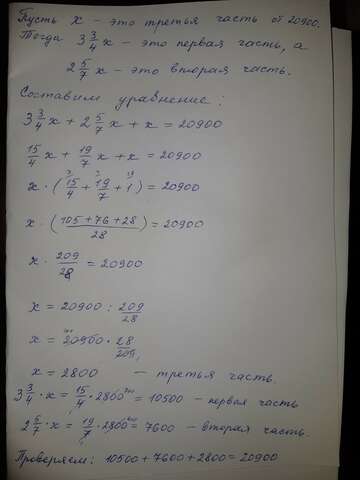 Пусть x - это третья часть от 20900.
Тогда 3 3/4 x - это первая часть, а
2 5/7 x - это вторая часть.
Составим уравнение:
3 3/4 x + 2 5/7 x + x = 20900
15/4 x + 19/7 x + x = 20900
x · (15/4 + 19/7 + 1) = 20900
x · (105+76+28 / 28) = 20900
x · 209/28 = 20900
x = 20900 : 209/28
x = 20900 · 28/209
x = 2800 - третья часть.
3 3/4 · x = 15/4 · 2800 = 10500 - первая часть
2 5/7 · x = 19/7 · 2800 = 7600 - вторая часть.
Проверяем: 10500 + 7600 + 2800 = 20900